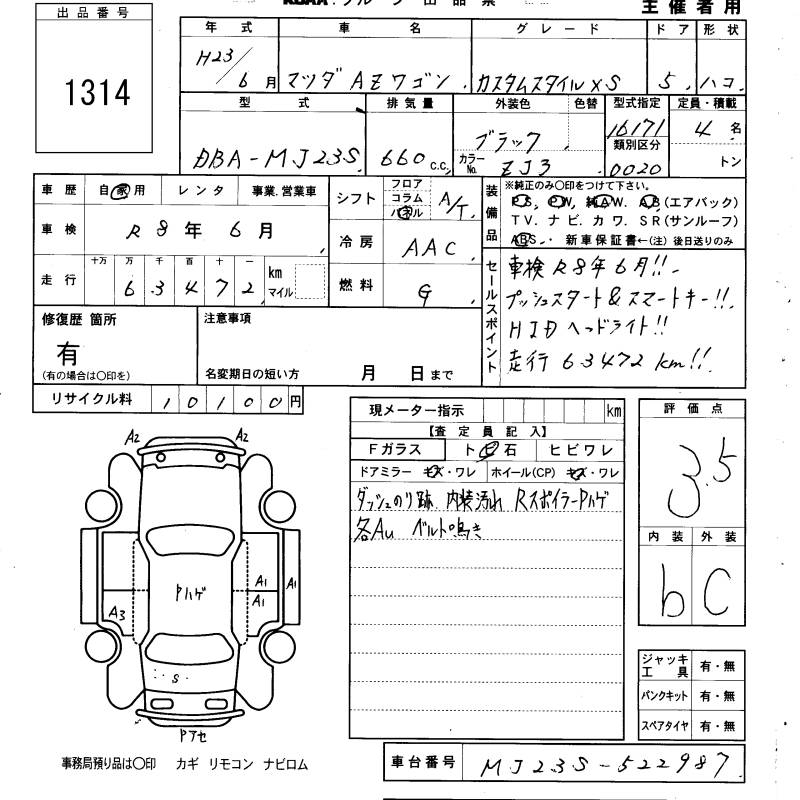 出品番号
1314
主催者用
年式 車名 グレード ドア 形状
H23/6月 マツダ AZワゴン カスタムスタイルXS 5 ハコ
型式 排気量 外装色 色替 型式指定 定員・積載
DBA-MJ23S 660 c.c. ブラック 16171 4名
カラーNo. ZJ3 類別区分 0020 トン
車歴 自家用 レンタ 事業.営業車
車検 R8年6月
走行 十万 万 千 百 十 一
63472 km マイル
シフト フロア コラム パネル A/T
冷房 AAC
燃料 G
装備品 ※純正のみ〇印をつけて下さい。
P.S, P.W, 純A.W. A.B(エアバック)
T V. ナ ビ. カ ワ. S R(サンルーフ)
ABS. 新車保証書←(注)後日送りのみ
セールスポイント
車検 R8年6月!!
プッシュスタート&スマートキー!!
HIDヘッドライト!!
走行 63472km!!
修復歴 箇所
有
(有の場合は〇印を)
注意事項
名変期日の短い方 月 日まで
リサイクル料 10100円
現メーター指示 km
【査定員記入】
Fガラス ト 石 ヒビワレ
ドアミラー キズ・ワレ ホイール(CP) キズ・ワレ
ダッシュのり跡 内装汚れ RスポイラーPハゲ
各AU ベルト鳴き
評価点
3.5
内装 外装
b C
A2 A2
A1 A1
A1
A3
Pハゲ
S
Pアセ
ジャッキ工具 有・無
パンクキット 有・無
スペアタイヤ 有・無
事務局預り品は〇印 カギ リモコン ナビロム
車台番号 MJ23S-522987